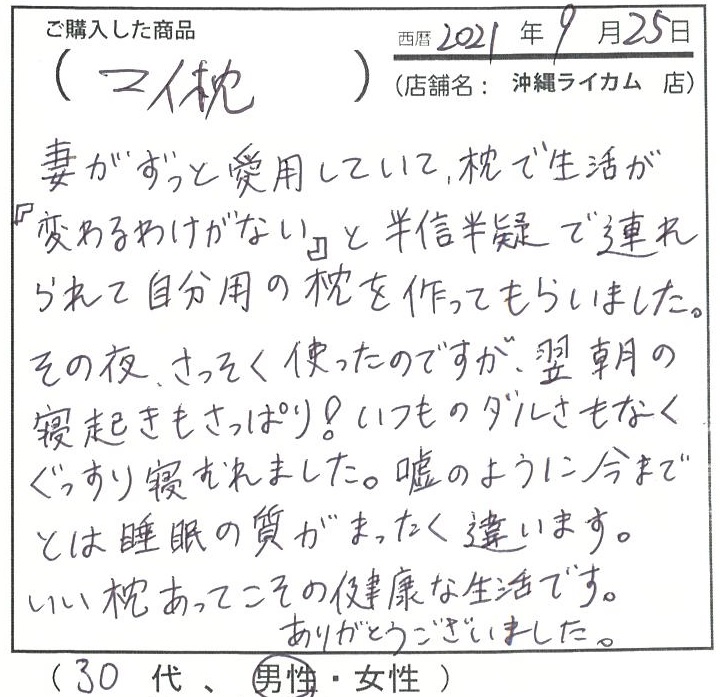 ご購入した商品
西暦2021年9月25日
(マイ枕)
(店舗名：沖縄ライカム 店)
妻がずっと愛用していて、枕で生活が
『変わるわけがない』と半信半疑で連れ
られて自分用の枕を作ってもらいました。
その夜、さっそく使ったのですが、翌朝の
寝起きもさっぱり！いつものダルさもなく
ぐっすり寝むれました。嘘のように今まで
とは睡眠の質がまったく違います。
いい枕あってこその健康な生活です。
ありがとうございました。
(30代、男性・女性)